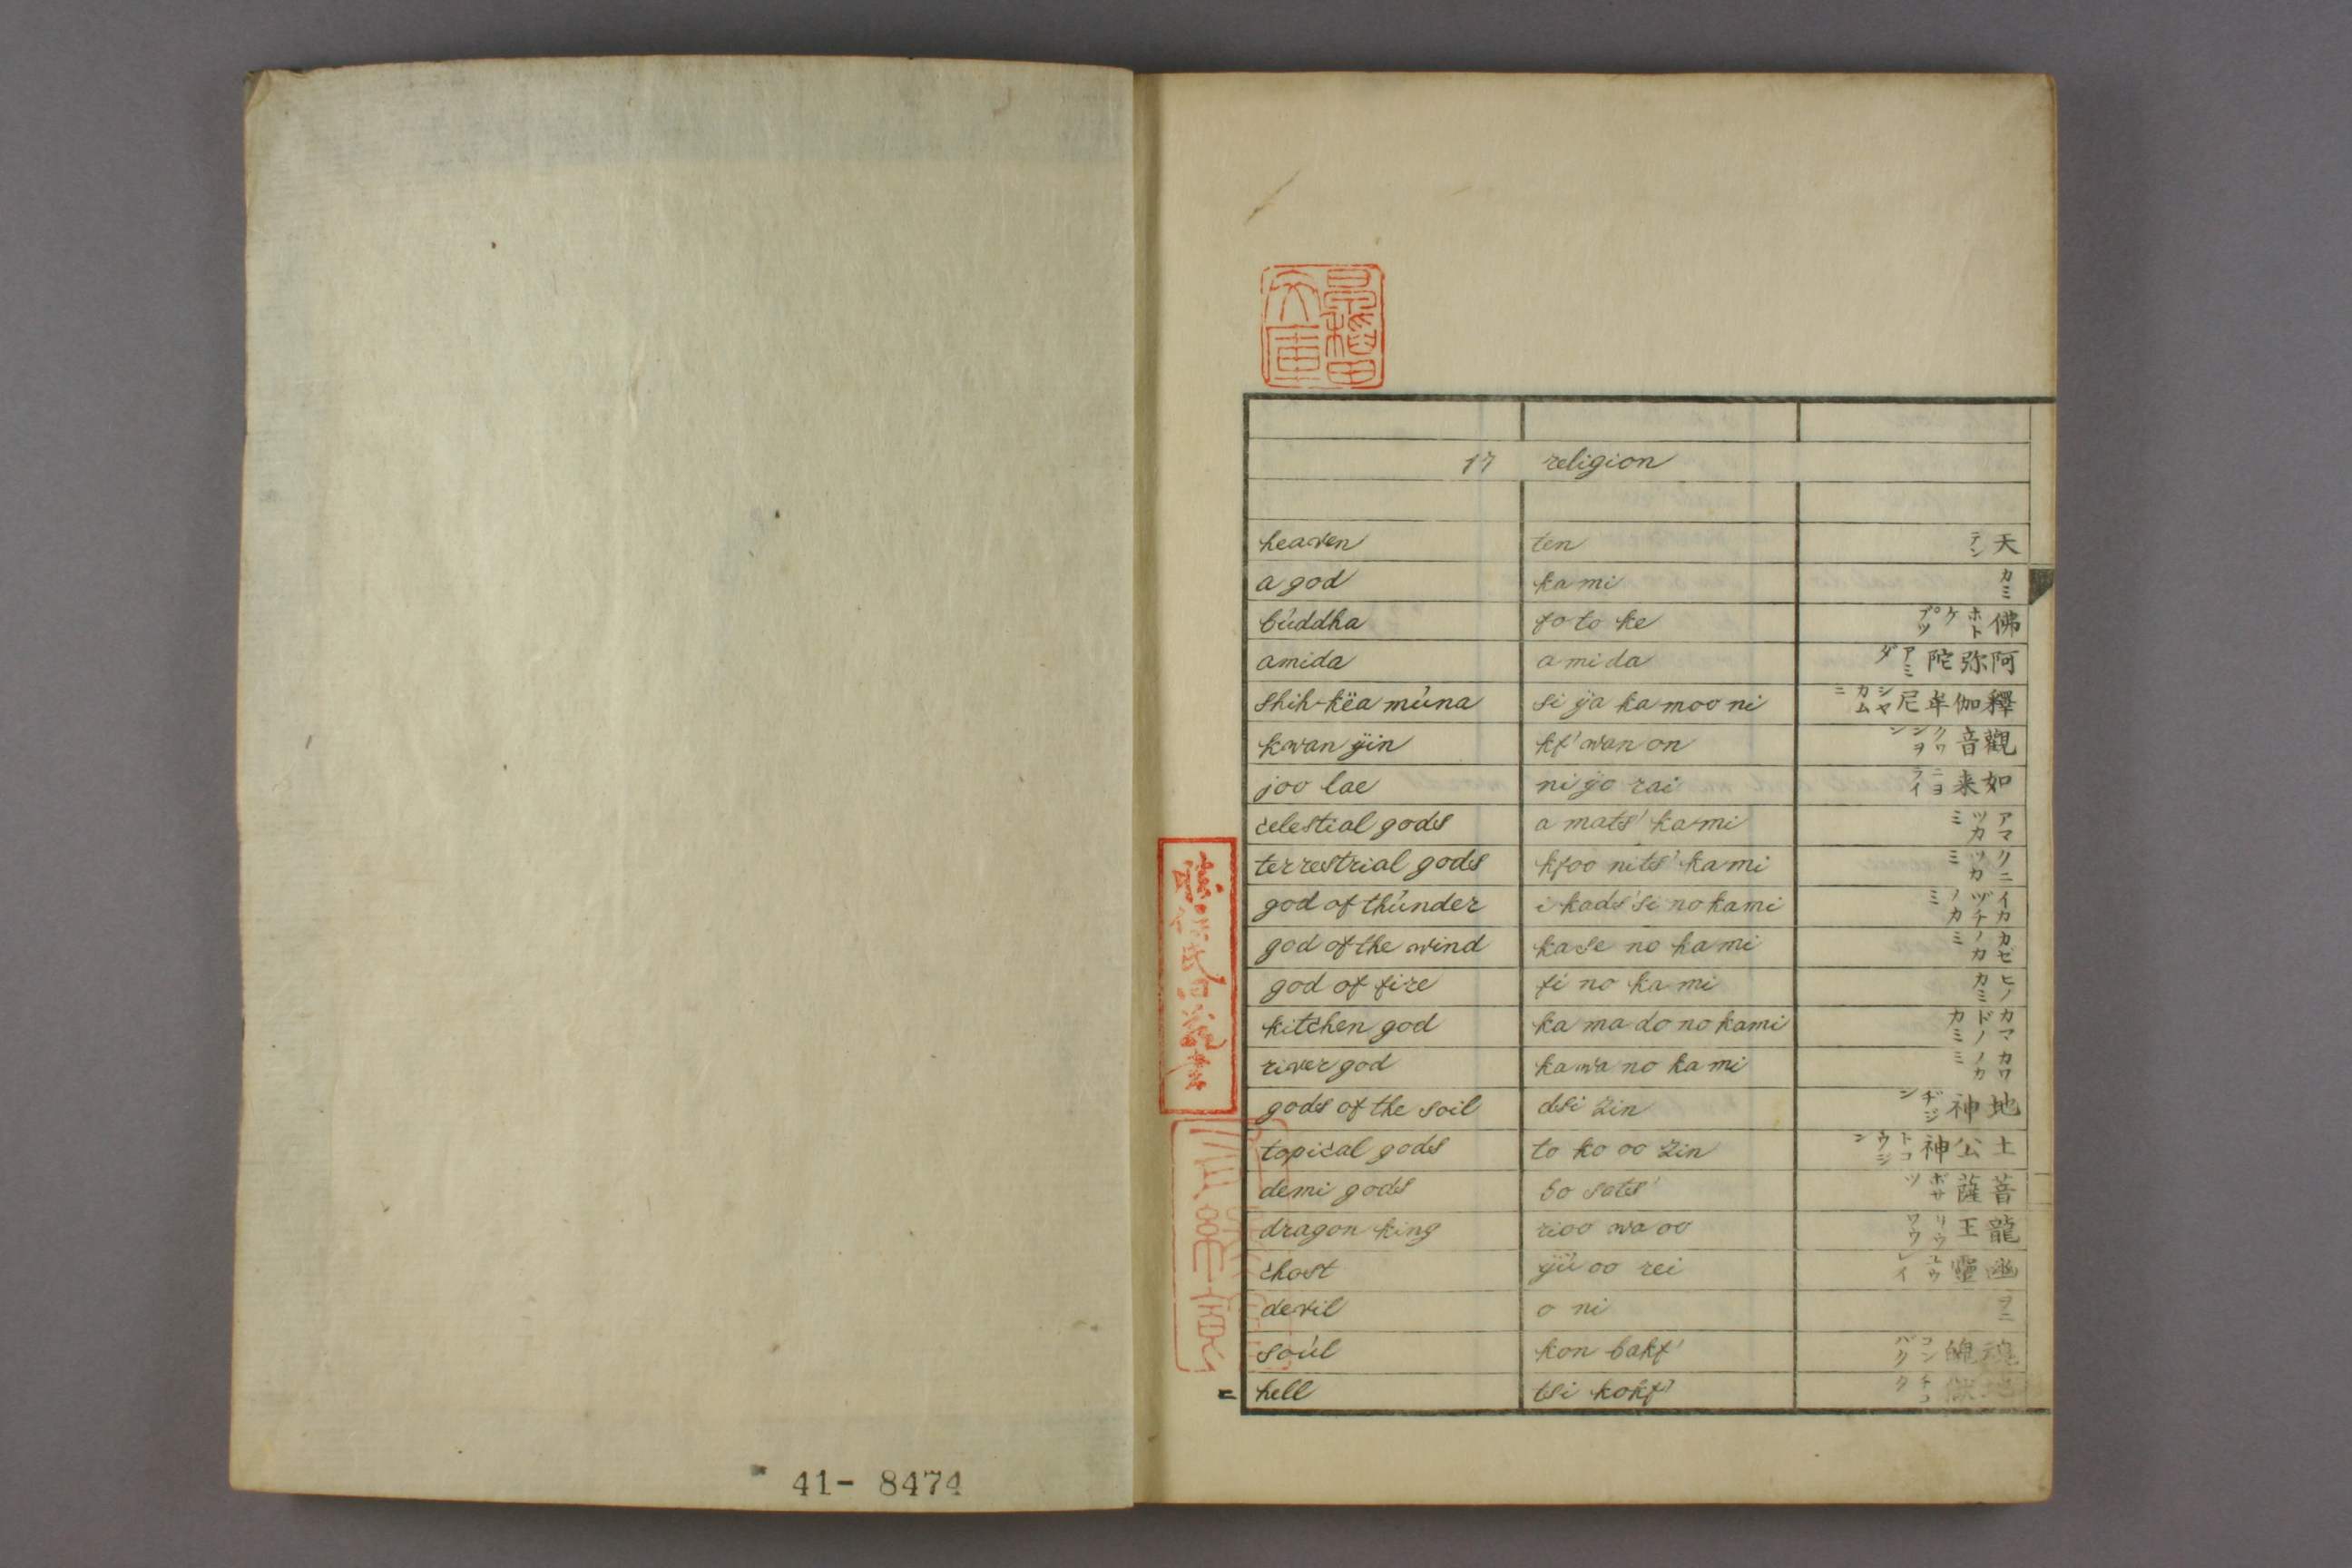 17 religion
heaven ten 天 テン
a god ka mi カミ
búddha fo to ke 佛 ホトケ プツ
amida a mi da 阿弥陀 アミダ
shih-këa múna si ÿa ka moo ni 釋伽牟尼 シヤカムニ
kwan ÿin kf' wan on 觀音 クワンヲン
joo lae ni ÿo rai 如来 ニヨライ
celestial gods a mats' ka mi アマツカミ
terrestrial gods kfoo nits' ka mi クニツカミ
god of thúnder i kads'si no kami イカヅチノカミ
god of the wind ka se no ka mi カゼノカミ
god of fire fi no ka mi ヒノカミ
kitchen god ka ma do no kami カマドノカミ
river god ka wa no ka mi カワノカミ
gods of the soil dsi zin 地神 ヂジン
topical gods to ko oo zin 土公神 トコウジン
demi gods bo sats' 菩薩 ボサツ
dragon king rioo wa oo 龍王 リウワウ
chost ÿú oo rei 幽靈 ユウレイ
devil o ni ヲニ
soúl kon bakf' 魂魄 コンバク
hell tsi kokf' 地獄 チコク
41- 8474